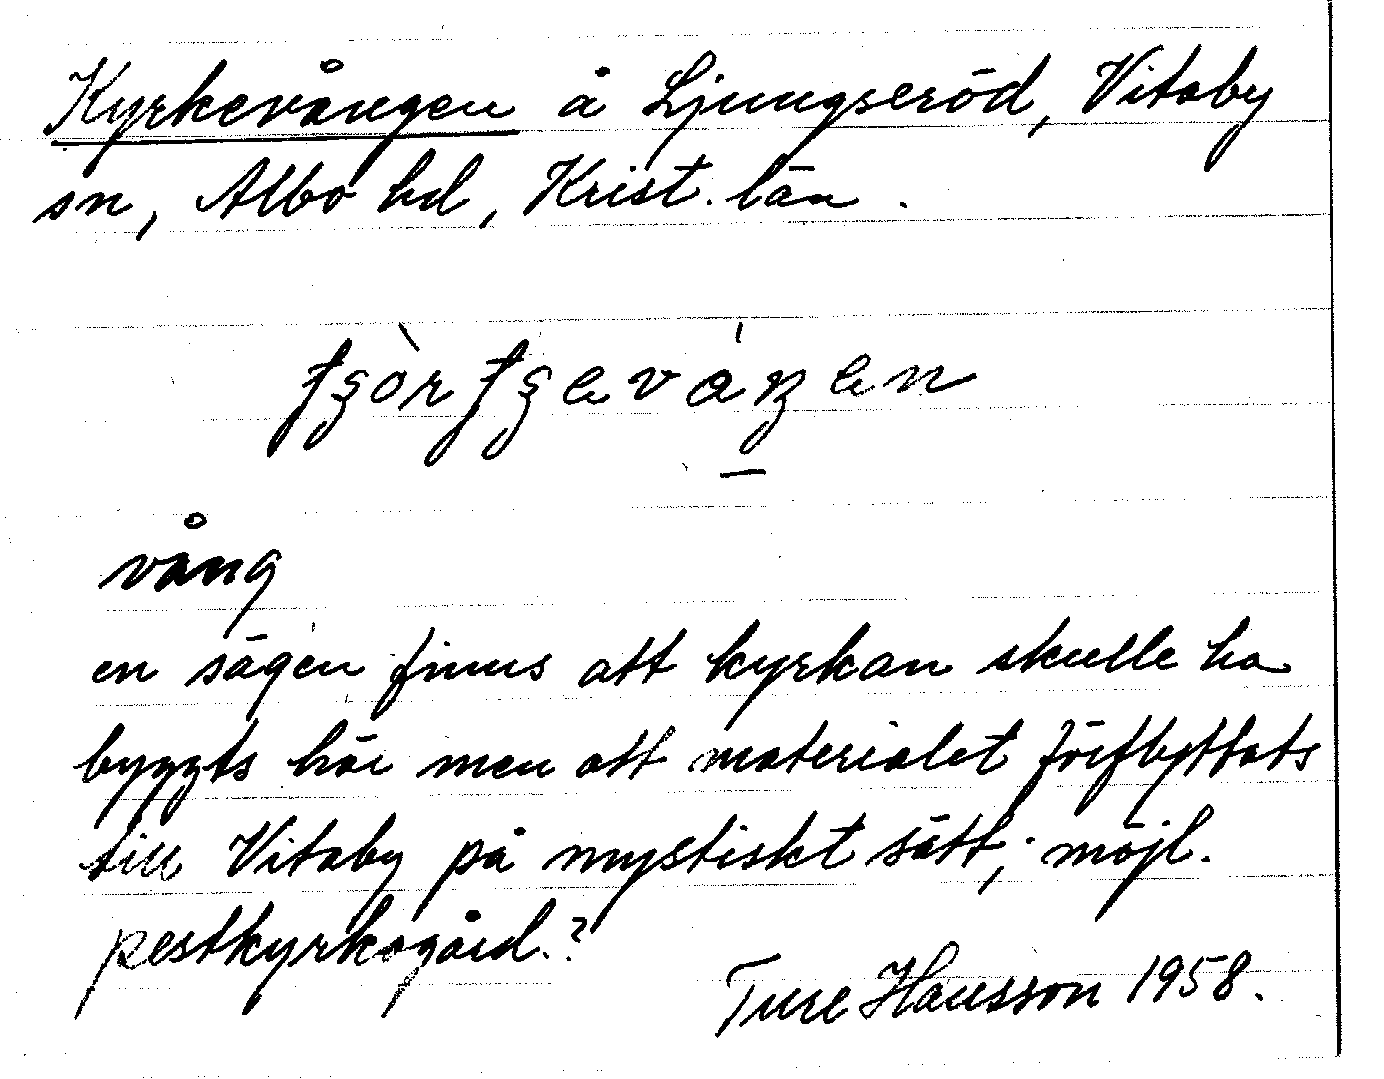 Kyrkevången å Ljungseröd, Vitaby
sn, Albo hd, Krist. län.
vång
en sägen finns att kyrkan skulle ha
byggts här men att materialet förflyttats
till Vitaby på mystiskt sätt; möjl.
pestkyrkogård.?
Ture Hansson 1958.